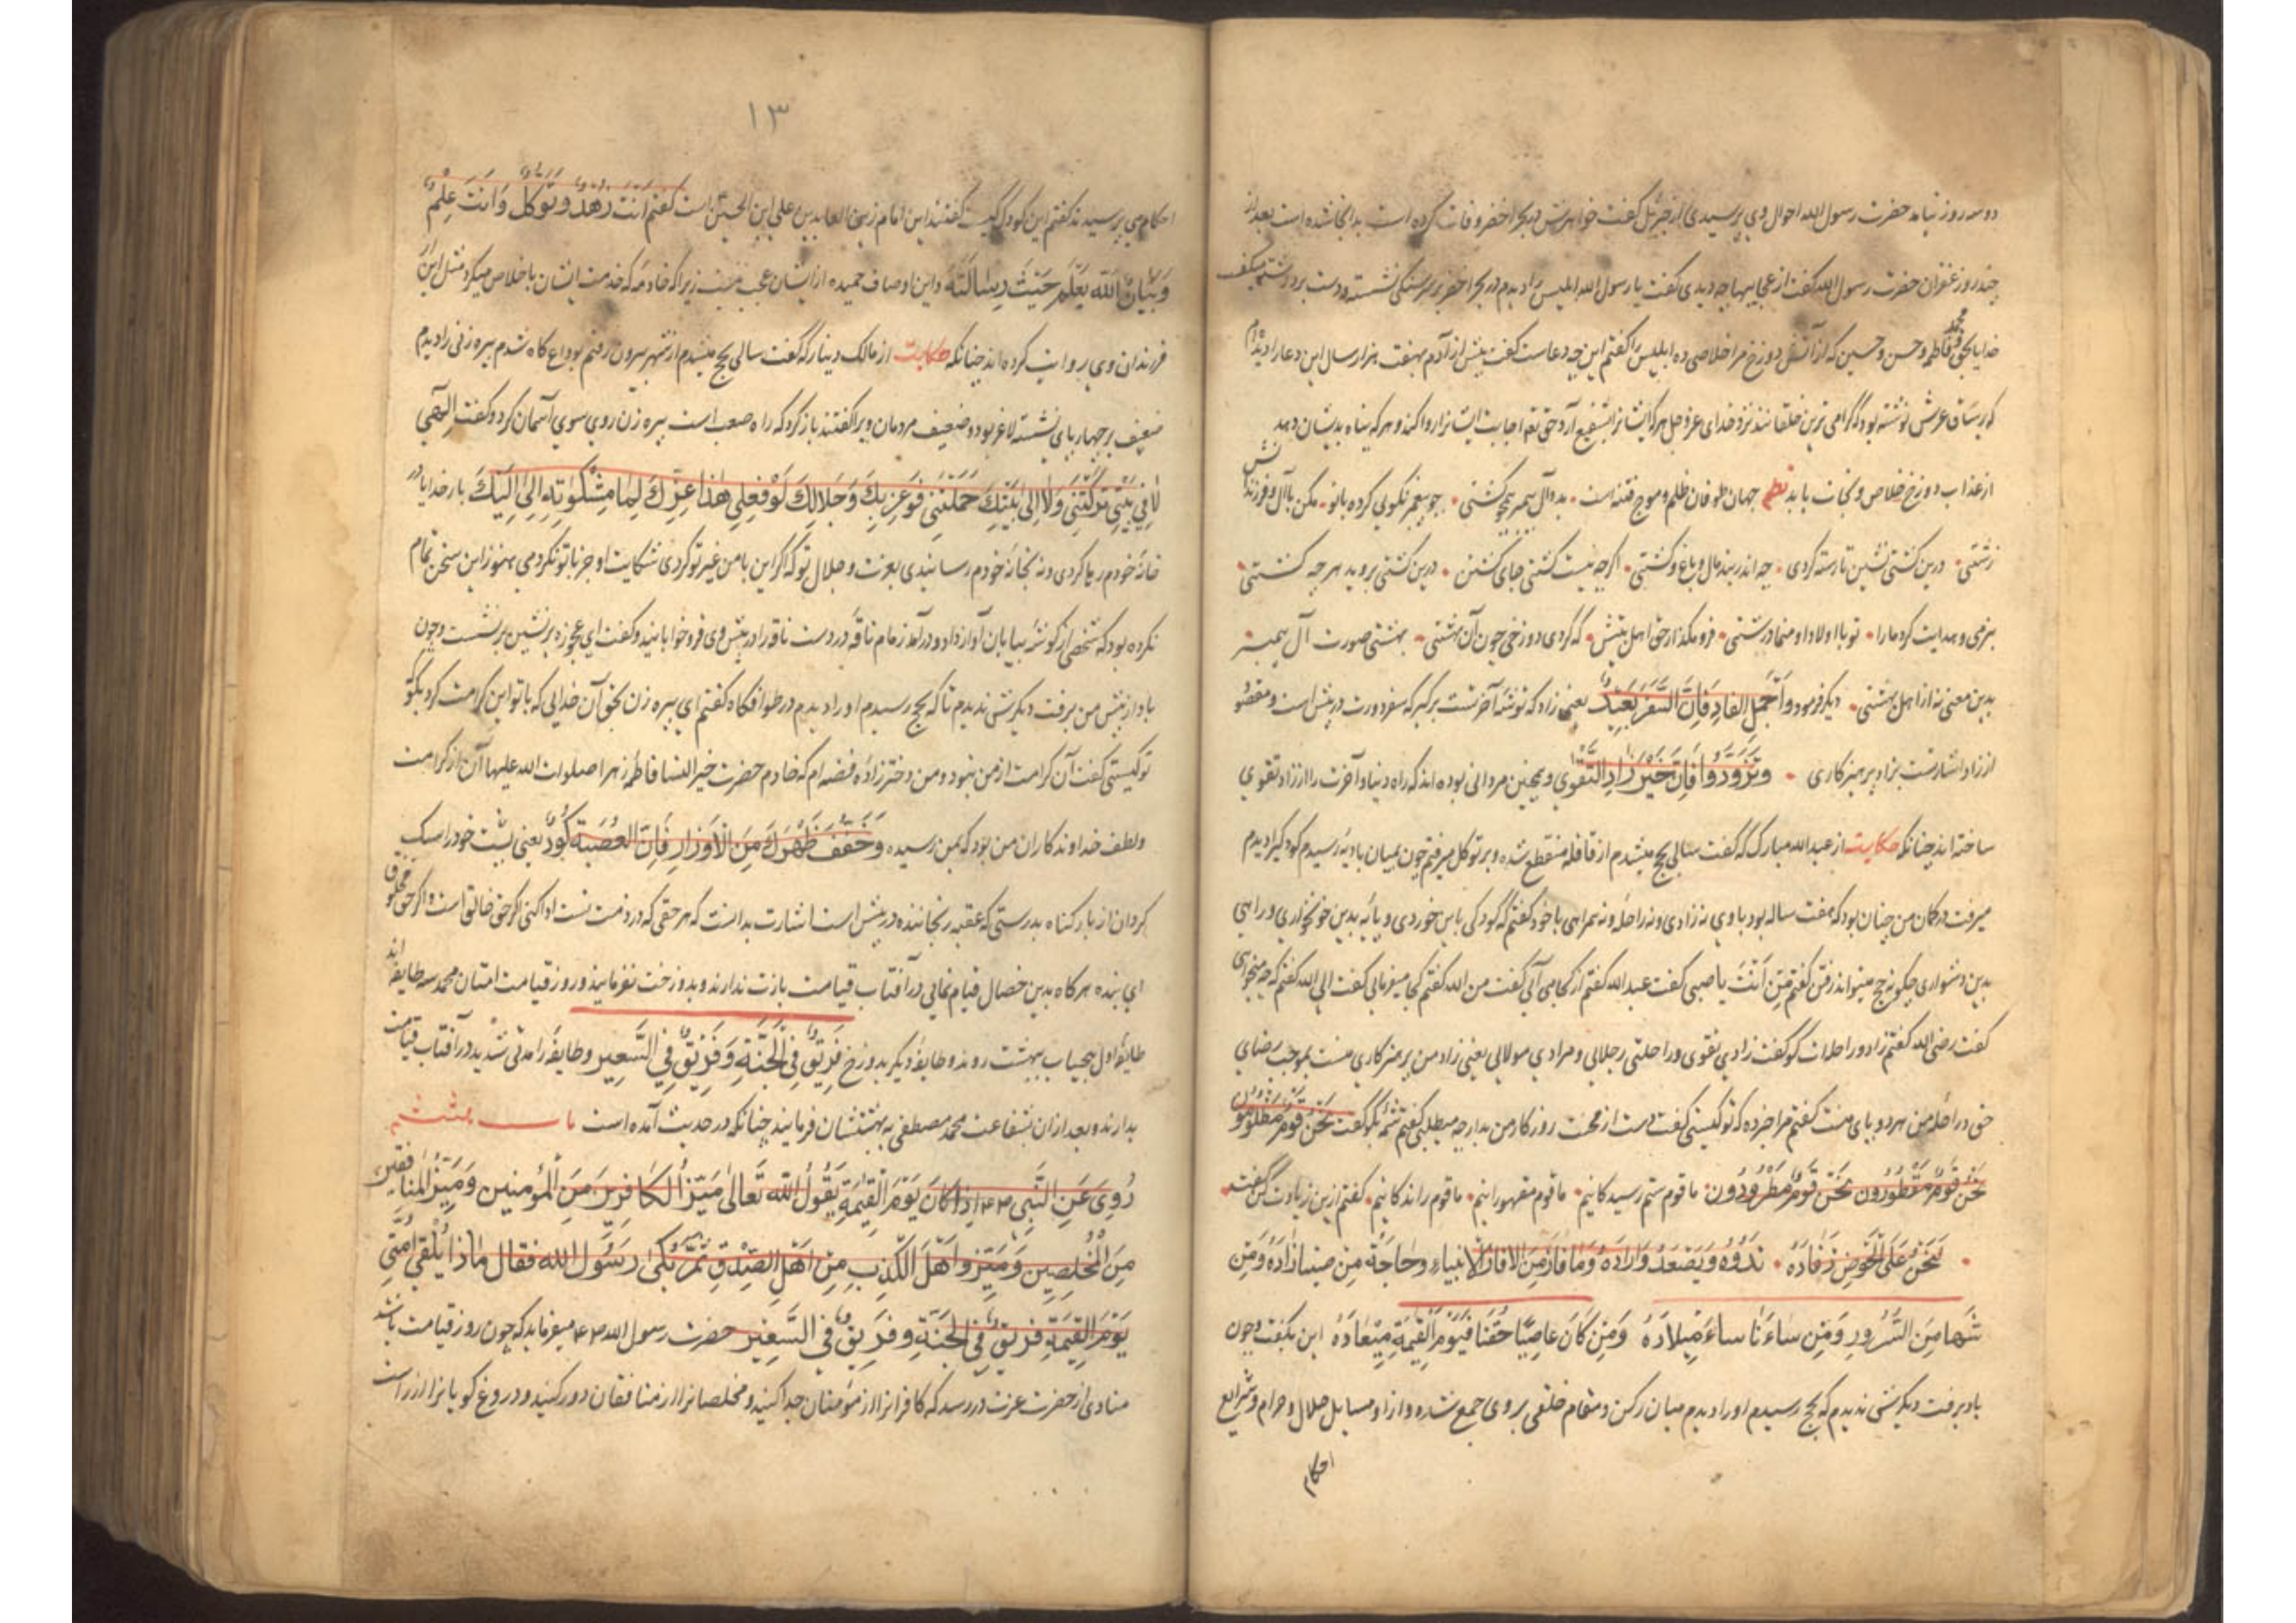 دو سه روز نیامد حضرت رسول الله احوال وی پرسیدی از جبرئیل گفت خواهرش در بحر اخضر وفات کرده است بدانجا شده است بعد از
چند روز عفران حضرت رسول الله گفت از عجایبها چه دیدی گفت یا رسول الله ابلیس را دیدم در بحر اخضر بر سر سنگی نشسته و دست برداشته میگفت
خدایا بحق محمد و فاطمه و حسن و حسین که از آتش دوزخ مرا خلاصی ده ابلیس را گفتم این چه دعاست گفت پیش از آدم بهفت هزار سال این دعا را دیدم
که بر ساق عرش نوشته بود که گرامی ترین خلقانند نزد خدای عز و جل هر که ایشانرا شفیع آرد حق تعه اجابت ایشانرا روا کند و هر که پناه بدیشان دهد
از عذاب دوزخ خلاص و نجات یابد نظم جهان طوفان ظلم و موج فتنه است بدو آل پیمبر همچو کشتی چو پیغمبر نکویی کرده با تو مکن با آل و فرزندش
زشتی درین کشتی نشین تا رسته گردی چه اندر بند مال و باغ و کشتی اگر چه نیست کشتی جای کشتن درین کشتی بروید هر چه کشتی
بنرمی و هدایت کرد ما را تو با اولاد او منما درشتی فرو مگذار حق اهل بیتش که گردی دوزخی چون آن بهشتی بهشتی صورت آل پیمبر
بدین معنی نه از اهل بهشتی دیگر فرمود و اَحْمِلِ الزادِ فَاِنَّ السَّفَرَ بَعِیدٌ یعنی زاد که توشه آخرتست برگیر که سفر دورت در پیش است و مقصود
از زاد اشارتست بزاد پرهیزکاری وَتَزَوَّدُوا فَاِنَّ خَیْرَ الزَّادِ التَّقْوی و همچنین مردانی بوده اند که راه دنیا و آخرت را از زاد تقوی
ساخته اند چنانکه حکایت از عبدالله مبارک که گفت سالی بحج میشدم از قافله منقطع شده و بر توکل میرفتم چون بمیان بادیه رسیدم کودکیرا دیدم
میرفت در کمان من چنان بود که هفت ساله بود با وی نه زادی و نه راحله و نه همراهی با خود گفتم که کودکی باین خوردی و پایه بدین خونخواری و راهی
بدین دشواری چگونه بحج میتواند رفتن گفتم مَنْ اَنْتَ یا صبی گفت عبدالله گفتم از کجا می آئی گفت من الله گفتم کجا میفرمائی گفت الی الله گفتم که چه میخواهی
گفت رضی الله گفتم زاد و راحلات گو گفت زادی تقوی و راحلتی رجلایی و مرادی مولائی یعنی زاد من پرهیزکاری منست بموجب رضای
حق و راحله من هر دو پای منست گفتم مرا خبر ده که تو کیستی گفت دست از محنت روزکار من بدار چه میطلبی گفتم شمه بگو گفت نَحْنُ قَومٌ مَظْلُومُون
نَحْنُ قَومٌ مَقْهُورُون نَحْنُ قَومٌ مَطْرُودُون ما قوم ستم رسیدگانیم ما قوم مقهورانیم ما قوم راندگانیم گفتم ازین زیادت کن گفت
لَنَحْنُ عَلَی الْحَوضِ ذُوَّادُهُ نَذُودُ وَیَسْعَدُ وُرَّادُهُ وَمَا فَازَ مَنْ فَازَ الا
سَاءَ مِیلادُهُ وَمَنْ کَانَ غاصِبًا حَقَّنَا فَیَوْمُ الْقِیمَةِ مِیْعَادُهُ این بگفت و چون
باد برفت دیگرش ندیدم که بحج رسیدم او را دیدم میان رکن و مقام خلقی بر وی جمع شده و از او مسایل حلال و حرام و شرایع
احکام
۱۳
احکام می پرسیدند گفتم این کودک کیست گفتند این امام زین العابدین علی ابن الحسین است گفتم اَنْتَ زُهْدٌ وَتَوَکُّلٌ وَاَنْتَ عِلْمٌ
وَبَیَانٌ اَللّه یَعْلَم حَیْثُ رِسَالَتَهُ و این اوصاف حمیده از ایشان عجب نیست زیرا که خادمه که خدمت ایشان باخلاص میکرد مثل این
فرزندان وی روایت کرده اند چنانکه حکایت از مالک دینار که گفت سالی بحج میشدم از شهر بیرون رفتم بوداع کاه شدم پیره زنی را دیدم
ضعیف بر چهارپای نشسته لاغر بود و ضعیف مردمان ویرا گفتند باز گرد که راه صعب است پیره زن روی سوی آسمان کرد و گفت الهی
لَا فِی بَیْتِی تَرَکْتَنِی وَلَا اِلی بَیْتِکَ حَمَلْتَنِی فَوَعِزَّتِکَ وَجَلَالِکَ لَوْ فَعَلَ هذا غَیْرُکَ لَمَا شَکَوْتُهُ اِلی اِلَیْکَ بار خدایا در
خانه خودم رها کردی و نه بخانه خودم رسانیدی بعزت و جلال تو که اگر این با من غیر تو کردی شکایت او جز با تو نکردمی هنوز این سخن تمام
نکرده بود که شخصی از گوشه بیابان آواز داد و درآمد زمام ناقه در دست ناقه را در پیش وی فرو خوابانید و گفت ای عجوزه برنشین برنشست و چون
باد از پیش من برفت دیگرش ندیدم تا که بحج رسیدم او را دیدم در طوافگاه گفتم ای پیره زن بحق آن خدائی که با تو این کرامت کرد بگو که
تو کیستی گفت آن کرامت از من نبود و من دخترزاده فضه ام که خادم حضرت خیرالنسا فاطمه زهرا صلوات الله علیها آن از کرامت
و لطف خداوندکاران من بود که بمن رسیده وَخَفِّفْ ظَهْرَکَ مِنَ الْاَوْزَارِ فَاِنَّ الْعَقَبَةَ کَؤُدٌ یعنی پشت خود را سبک
گردان از بار کناه بدرستی که عقبه رنجاننده در پیش است اشارت بدانست که هر حقی که در ذمت تست ادا کنی اگر حق خالق است و اگر حق مخلوق
ای بنده هرکاه بدین خصال قیام نمائی در آفتاب قیامت بازت ندارند و بدوزخت نفرمایند و روز قیامت امتان محمد سه طایفه اند
طایفه اول بیحساب ببهشت روند و طایفه دیگر بدوزخ فَرِیْقٌ فِی الْجَنَّةِ وَفَرِیْقٌ فِی السَّعِیْر و طایفه را مدتی شدید در آفتاب قیامت
بدارند و بعد از آن بشفاعت محمد مصطفی به بهشتشان فرمایند چنانکه در حدیث آمده است باب هشتم
رُوِیَ عَنِ النَّبِیِّ اِذَا کَانَ یَوْمَ الْقِیٰمَةِ یَقُولُ اللّه تَعَالیٰ مَیِّزْ الْکَافِرِیْنَ مِنَ الْمُؤْمِنِین وَمَیِّزْ الْمُنَافِقِیْنَ
مِنَ الْمُخْلِصِیْنَ وَمَیِّزُوا اَهْلَ الْکَذِبِ مِنْ اَهْلِ الصِّدْقِ ثُمَّ بُکیٰ رَسُولُ اللّه فَقَالَ مَاذَا یُلْقیٰ اُمَّتِی
یَوْمَ الْقِیٰمَةِ فَرِیْقٌ فِی الْجَنَّةِ وَفَرِیْقٌ فِی السَّعِیْر حضرت رسول الله میفرماید که چون روز قیامت باشد
منادی از حضرت عزت در رسد که کافرانرا از مؤمنان جدا کنید و مخلصانرا از منافقان دور کنید و دروغ گویانرا از راست